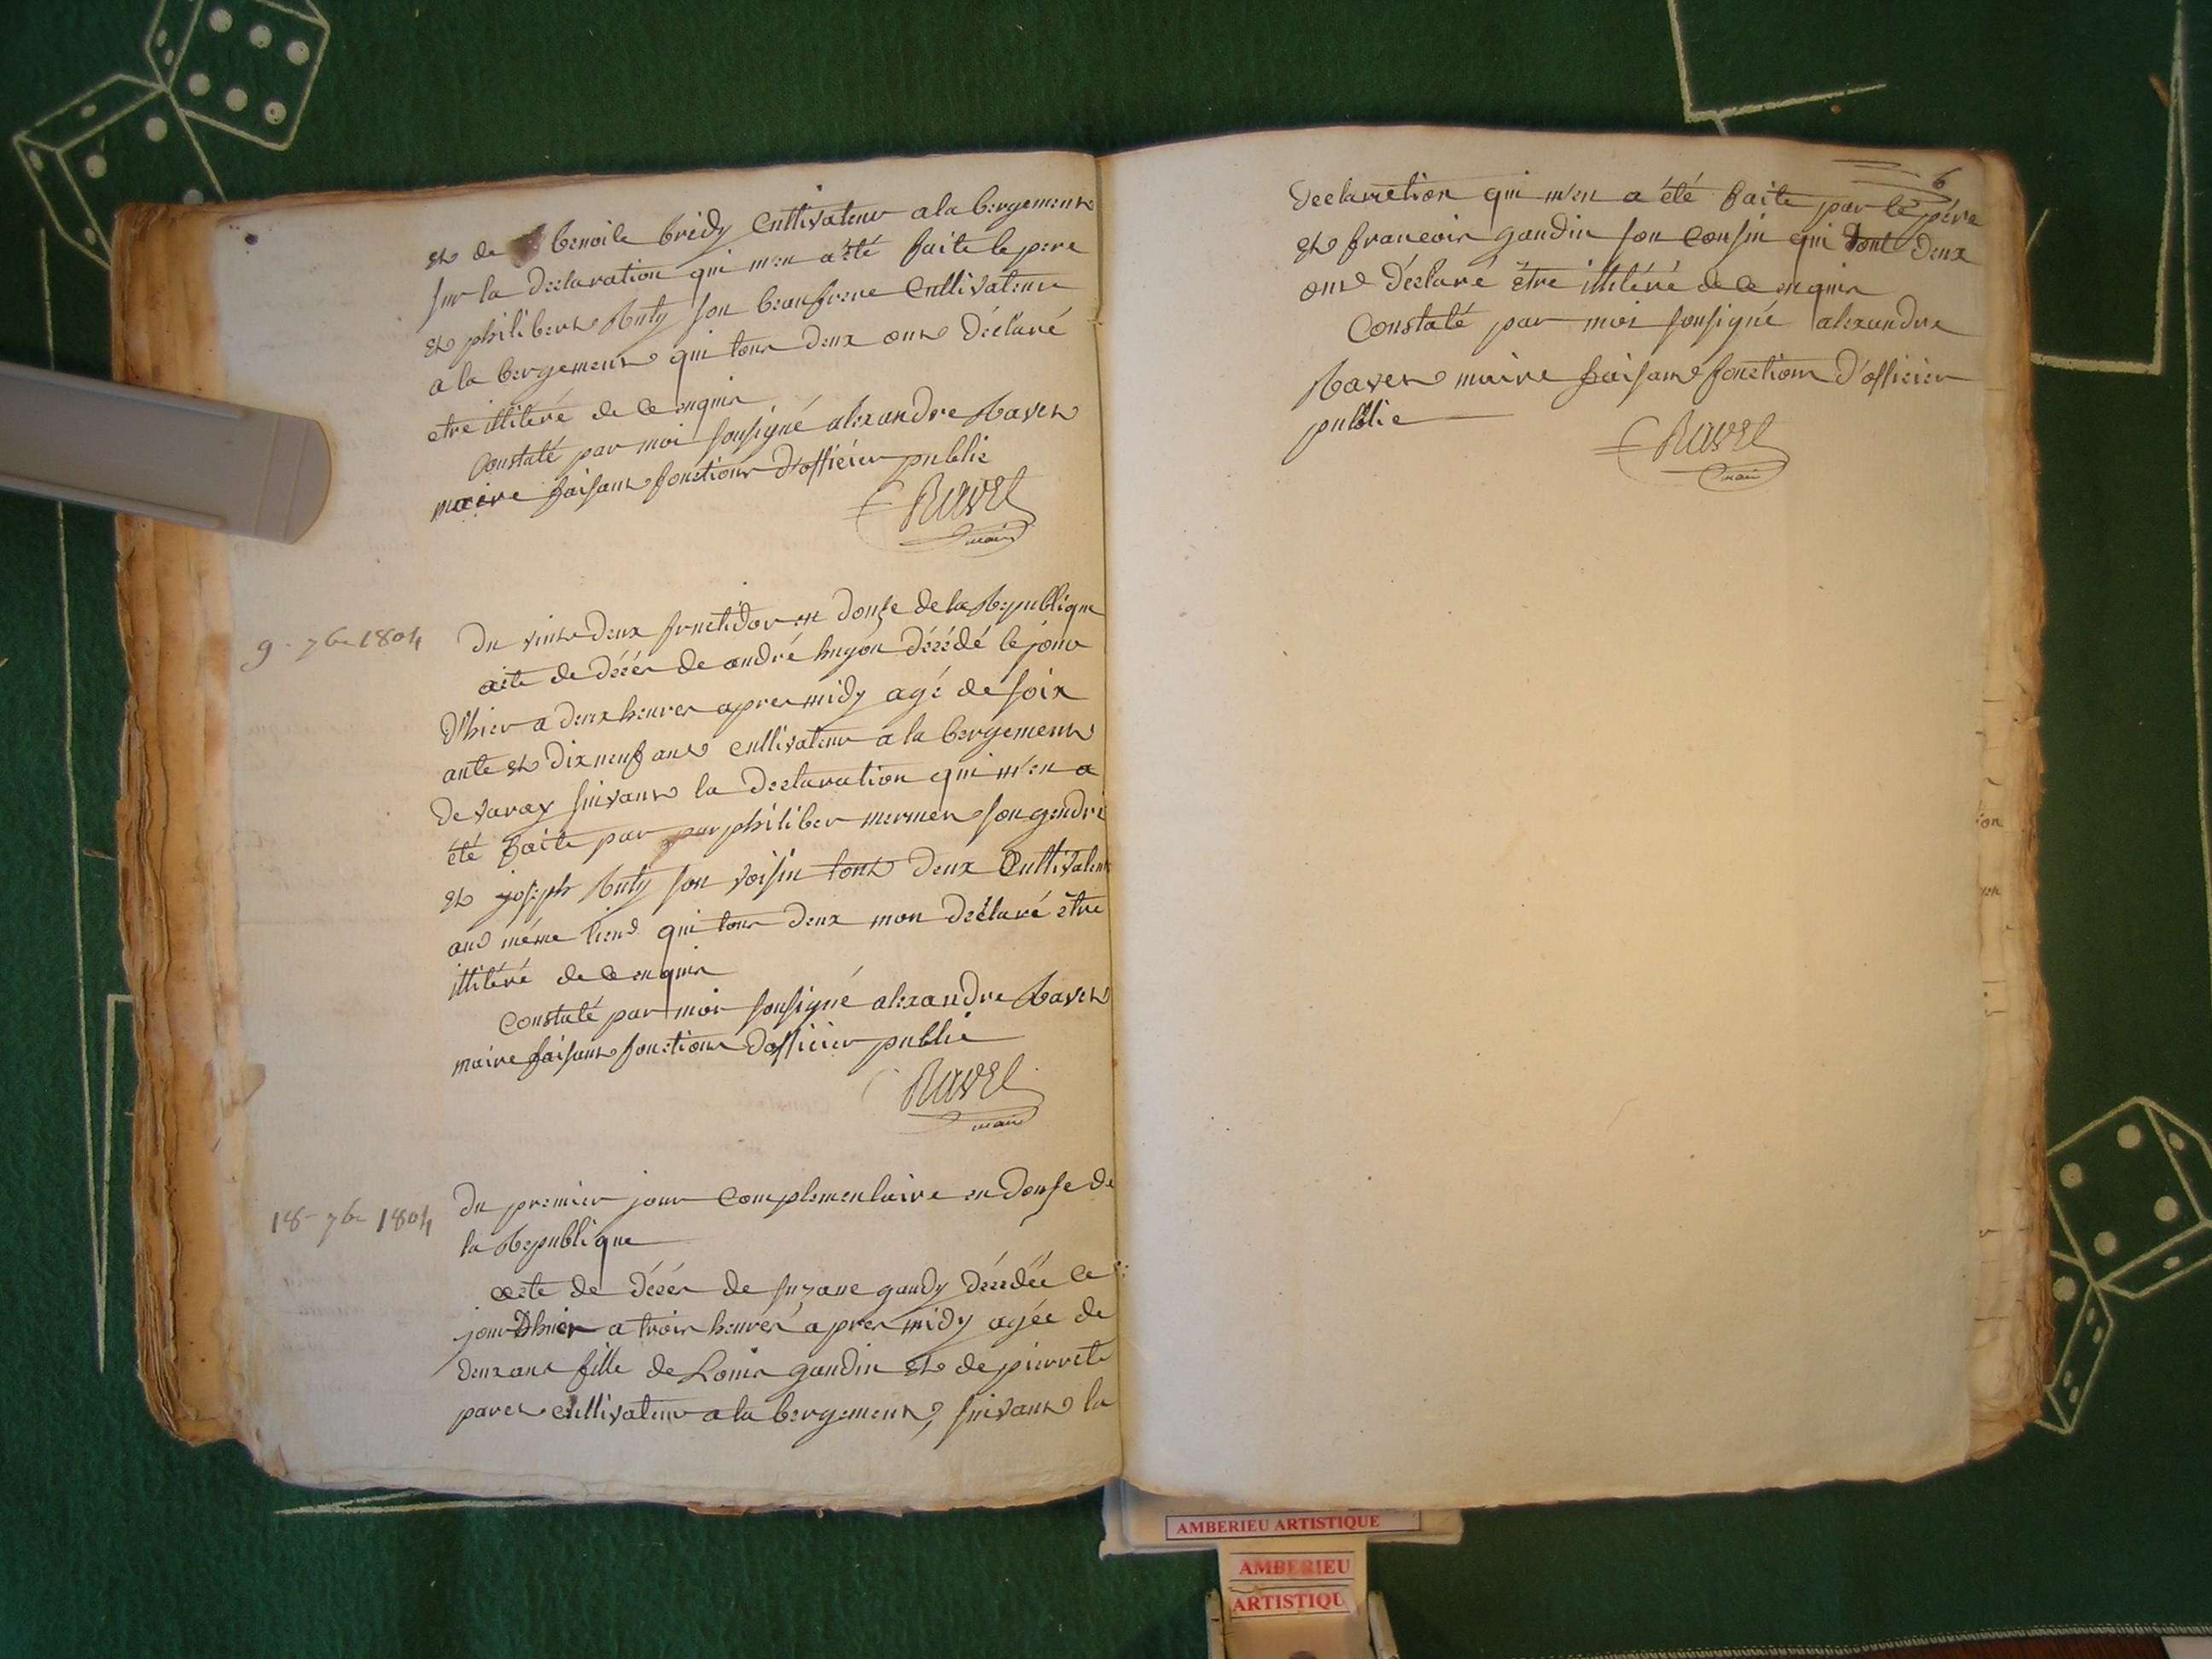 et de benoite bridy Cultivateur a la bergement
sur la declaration qui m'en a été faite le pere
et philibert Ruty son beaufrere Cultivateur
a la bergement qui tous deux ont déclaré
etre illitéré de ce enquis
Constaté par moi sousigné alexandre Ravet
maire faisant fonctions d'officier public
RAVEL
maire
9 - 7bre 1804
Du vint deux fructidor en douse de la Republique
acte de décés de andré hugon décédé le jour
d'hier a deux heures apres midy agé de soix
ante et dix neuf ans cultivateur a la bergement
de varay suivant la declaration qui m'en a
été faite par par philiber mermet son gendre
et joseph Ruty son voisin tout deux Cultivateur
aud même lieud qui tous deux mon déclaré être
illitéré de ce enquis
Constaté par moi sousigné alexandre Ravet
maire faisant fonctions d'officier public
RAVEL
maire
18 - 7bre 1804
Du premier jour complementaire en douse de
la Republique
acte de décés de suzane gaudy décédée le
jour d'hier a trois heures apres midy agée de
deux ans fille de Louis gaudin et de pierrete
paret cultivateur a la bergement, suivant la
6
declaration qui m'en a été faite par le pére
et francois gaudin son cousin qui tout deux
ont déclaré être illitéré de ce enquis
Constaté par moi sousigné alexandre
Ravet maire faisant fonctions d'officier
public
RAVEL
maire
AMBERIEU ARTISTIQUE
AMBERIEU
ARTISTIQU